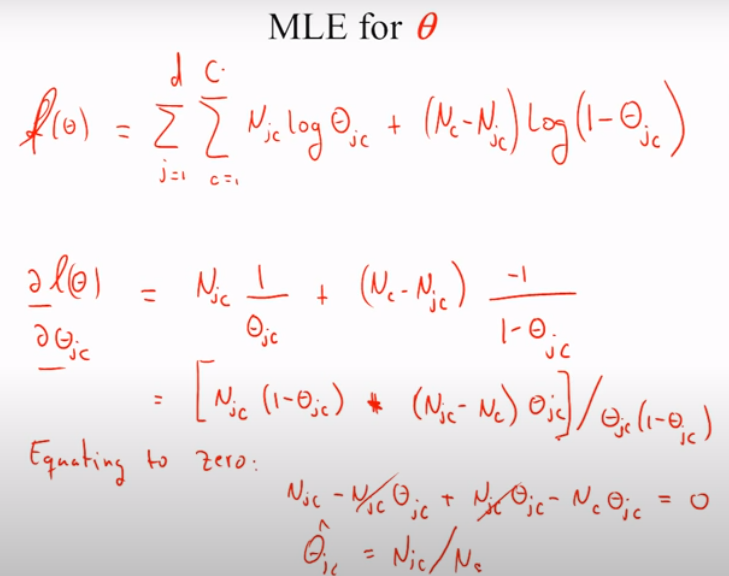 MLE for θ
ℓ(θ) = Σ_{j=1}^{d} Σ_{c=1}^{C} N_{jc} log θ_{jc} + (N_c - N_{jc}) log(1-θ_{jc})
∂ℓ(θ)/∂θ_{jc} = N_{jc} 1/θ_{jc} + (N_c - N_{jc}) -1/(1-θ_{jc})
= [N_{jc} (1-θ_{jc}) * (N_{jc} - N_c) θ_{jc}] / θ_{jc}(1-θ_{jc})
Equating to zero:
N_{jc} - N_{jc} θ_{jc} + N_{jc} θ_{jc} - N_c θ_{jc} = 0
θ̂_{jc} = N_{jc}/N_c